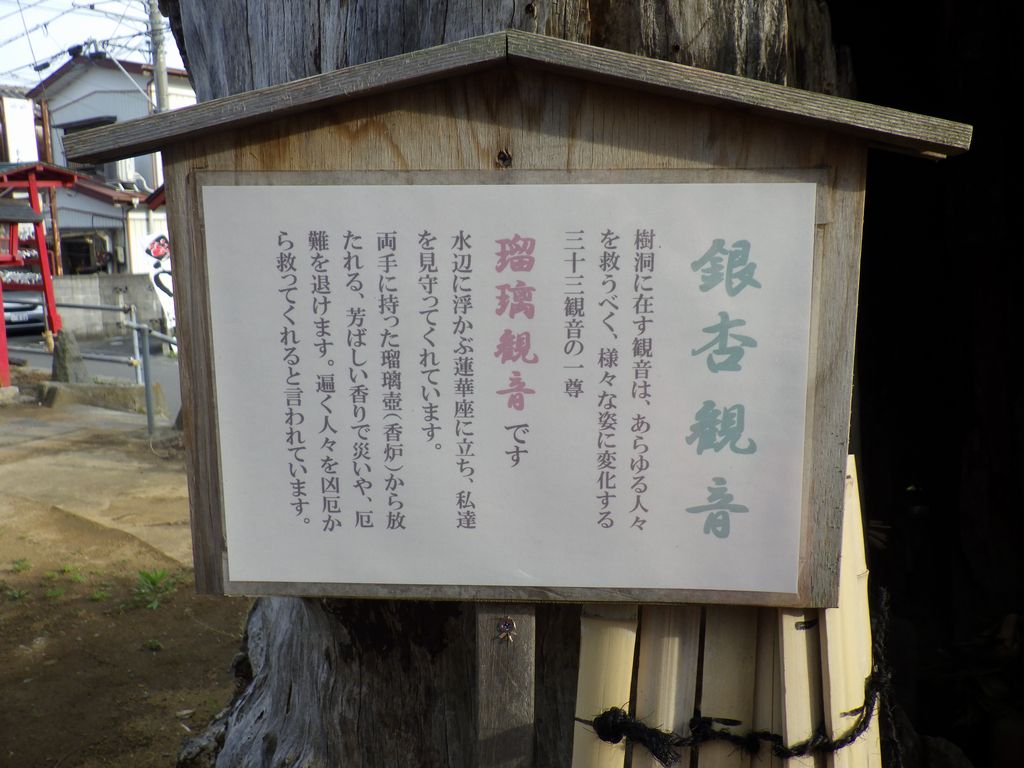 銀杏観音
樹洞に在す観音は、あらゆる人々
を救うべく、様々な姿に変化する
三十三観音の一尊
瑠璃観音です
水辺に浮かぶ蓮華座に立ち、私達
を見守ってくれています。
両手に持った瑠璃壺(香炉)から放
たれる、芳ばしい香りで災いや、厄
難を退けます。遍く人々を凶厄か
ら救ってくれると言われています。